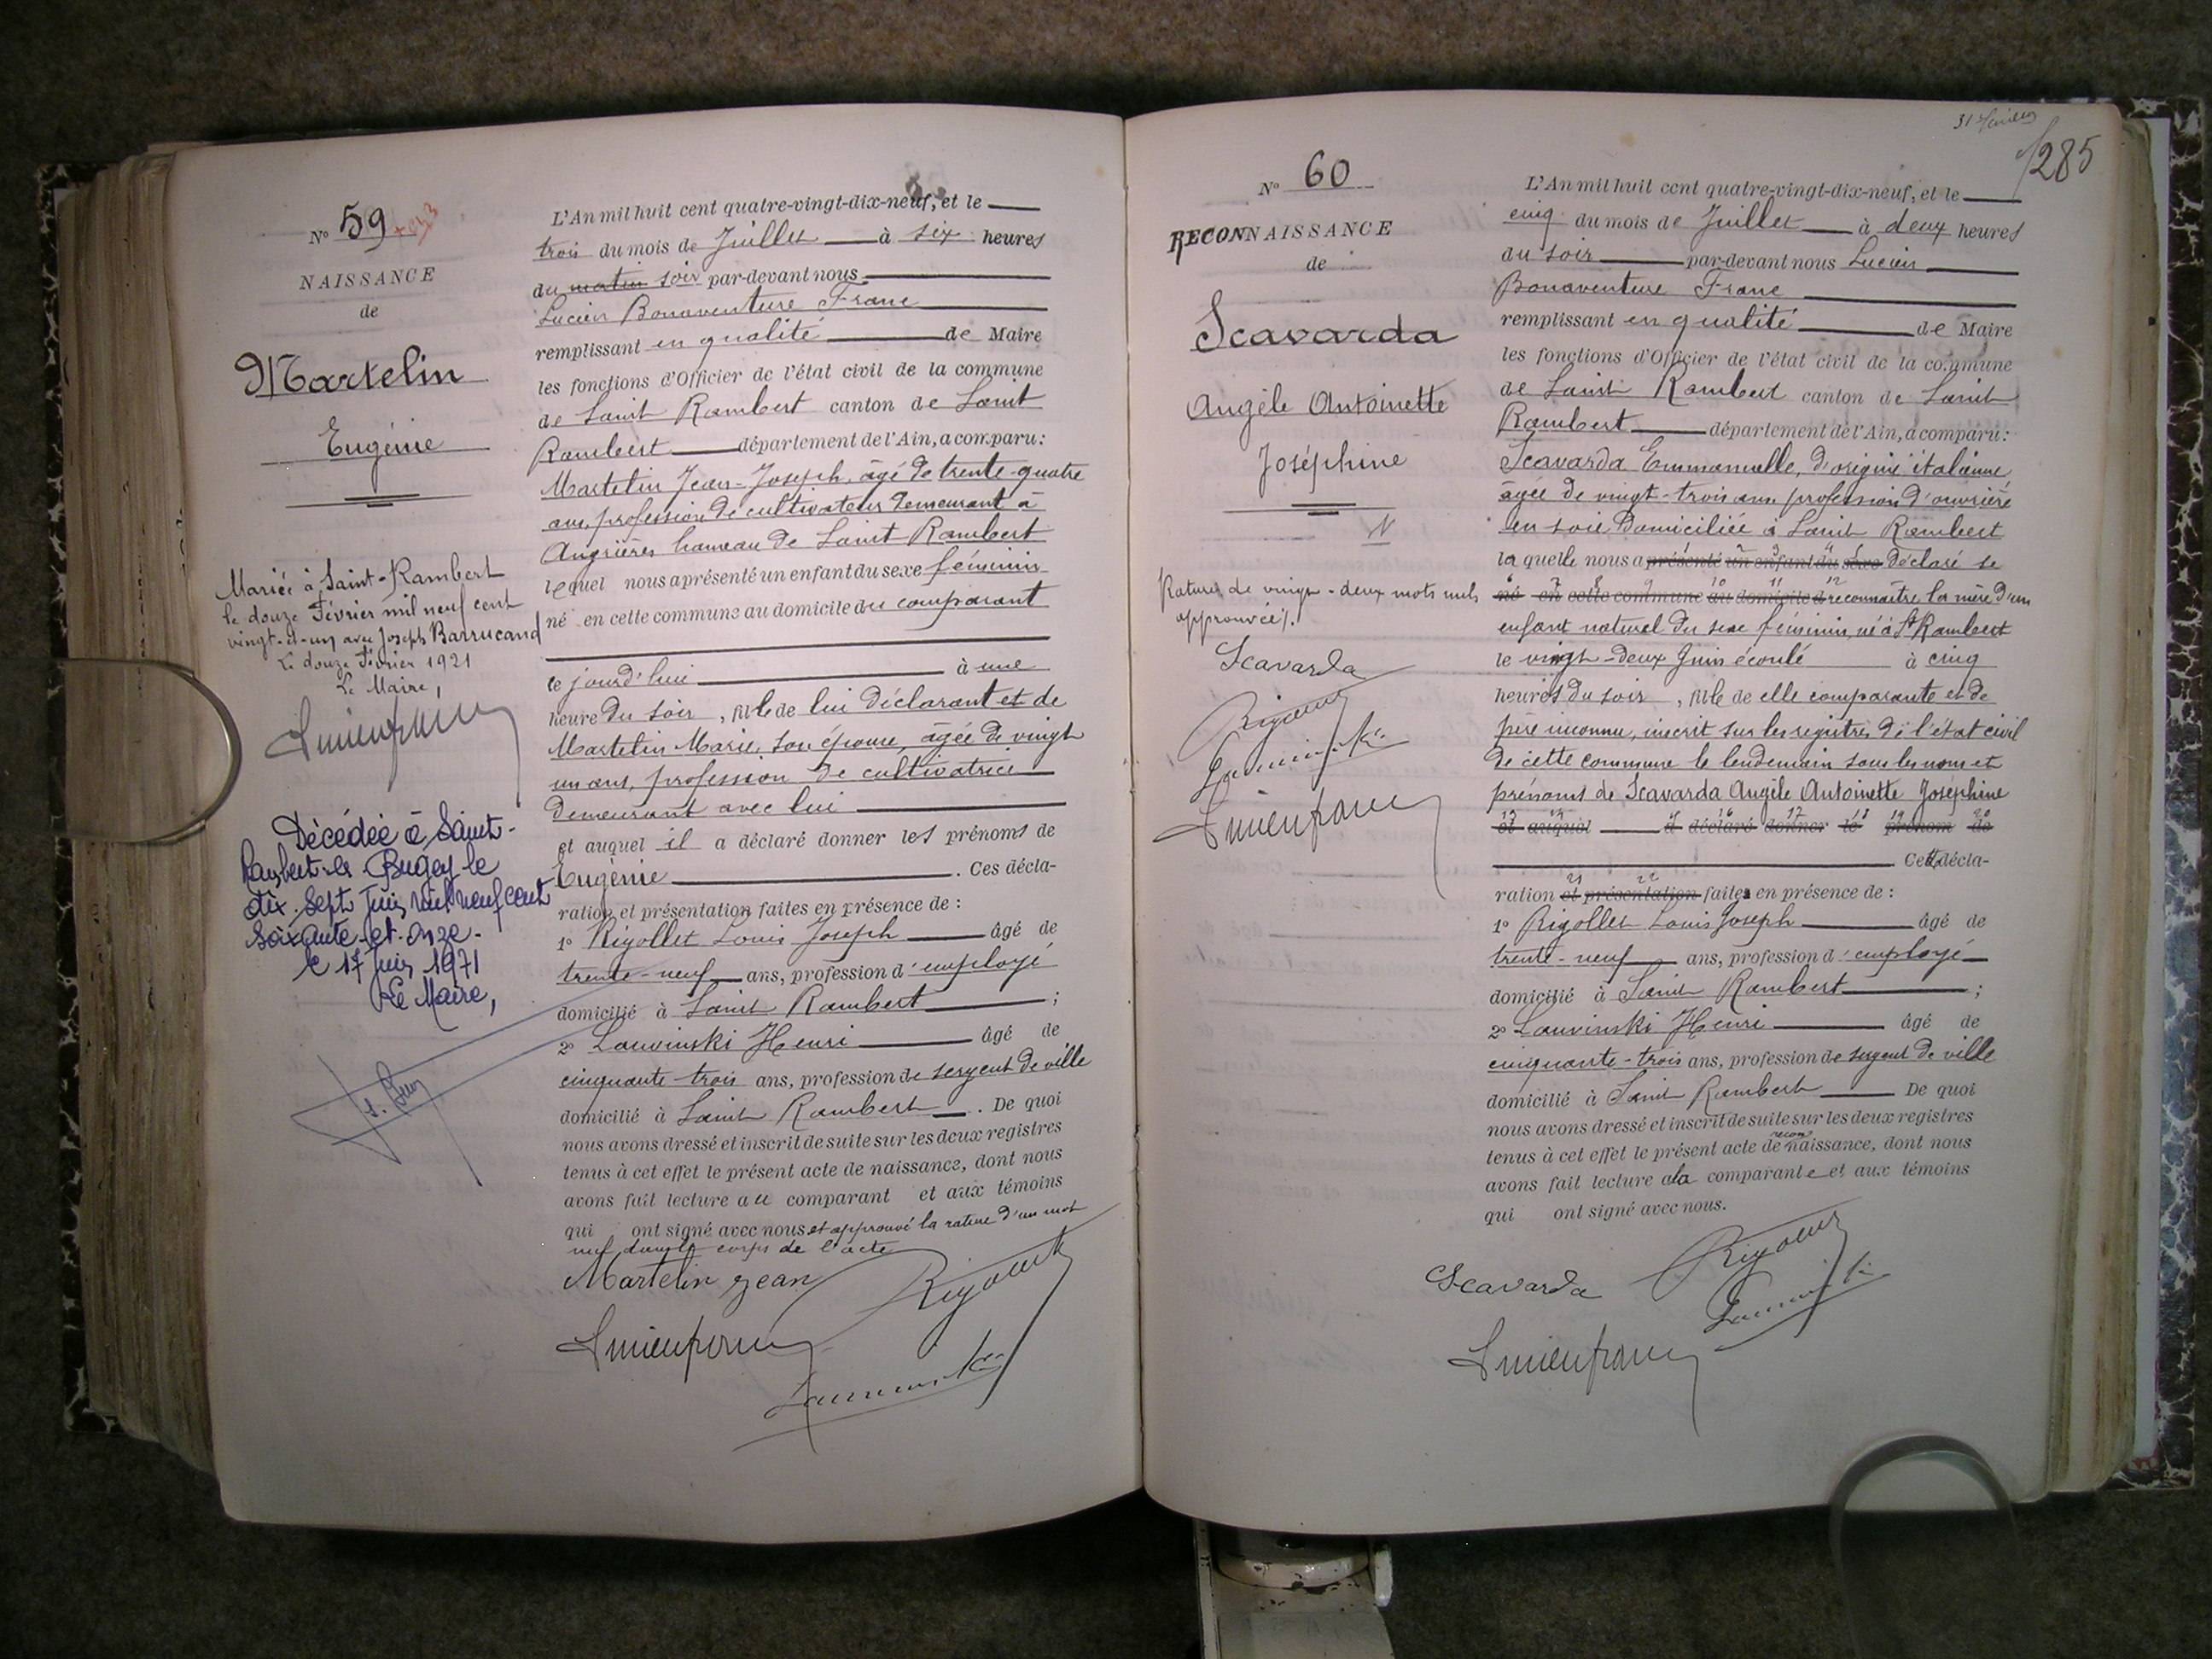 N° 59
NAISSANCE
de
Martelin
Eugénie
Mariée à Saint-Rambert
le douze Février mil neuf cent
vingt-et-un avec Joseph Barrucand
Le douze Février 1921
Le Maire,
Décédée à Saint-
Rambert-en-Bugey le
dix-sept Juin mil neuf cent
soixante-et-onze-
le 17 Juin 1971
Le Maire,
L'An mil huit cent quatre-vingt-dix-neuf, et le
trois du mois de Juillet à six heures
du matin soir par-devant nous
Lucien Bonaventure Franc
remplissant en qualité de Maire
les fonctions d'Officier de l'état civil de la commune
de Saint Rambert canton de Saint
Rambert département de l'Ain, a comparu:
Martelin Jean-Joseph, âgé de trente-quatre
ans, profession de cultivateur demeurant à
Angrières hameau de Saint Rambert
lequel nous a présenté un enfant du sexe féminin
né en cette commune au domicile du comparant
ce jourd'hui à une
heure du soir, fille de lui déclarant et de
Martelin Marie, son épouse, âgée de vingt
un ans, profession de cultivatrice
demeurant avec lui
et auquel il a déclaré donner les prénoms de
Eugénie. Ces décla-
ration et présentation faites en présence de :
1° Rigollet Louis Joseph âgé de
trente-neuf ans, profession d'employé
domicilié à Saint Rambert ;
2° Louvinski Henri âgé de
cinquante trois ans, profession de sergent de ville
domicilié à Saint Rambert. De quoi
nous avons dressé et inscrit de suite sur les deux registres
tenus à cet effet le présent acte de naissance, dont nous
avons fait lecture au comparant et aux témoins
qui ont signé avec nous et approuvé la rature d'un mot
nul dans le corps de l'acte
Martelin Jean
N° 60
RECONNAISSANCE
de
Scavarda
Angèle Antoinette
Joséphine
N
Ratures de vingt-deux mots nuls
approuvées.
Scavarda
285
L'An mil huit cent quatre-vingt-dix-neuf, et le
cinq du mois de Juillet à deux heures
du soir par-devant nous Lucien
Bonaventure Franc
remplissant en qualité de Maire
les fonctions d'Officier de l'état civil de la commune
de Saint Rambert canton de Saint
Rambert département de l'Ain, a comparu:
Scavarda Emmanuelle, d'origine italienne
âgée de vingt-trois ans profession d'ouvrière
en soie domiciliée à Saint Rambert
laquelle nous a présenté un enfant du sexe déclaré se
né en cette commune au domicile d reconnaître la mère d'un
enfant naturel du sexe féminin, né à St Rambert
le vingt-deux Juin écoulé à cinq
heures du soir, fille de elle comparante et de
père inconnu, inscrit sur les registres de l'état civil
de cette commune le lendemain sous les noms et
prénoms de Scavarda Angèle Antoinette Joséphine
et auquel a déclaré donner le prénom de
Cette décla-
ration et présentation faites en présence de :
1° Rigollet Louis Joseph âgé de
trente-neuf ans, profession d'employé
domicilié à Saint Rambert ;
2° Louvinski Henri âgé de
cinquante-trois ans, profession de sergent de ville
domicilié à Saint Rambert De quoi
nous avons dressé et inscrit de suite sur les deux registres
tenus à cet effet le présent acte de reconnaissance, dont nous
avons fait lecture à la comparante et aux témoins
qui ont signé avec nous.
Scavarda